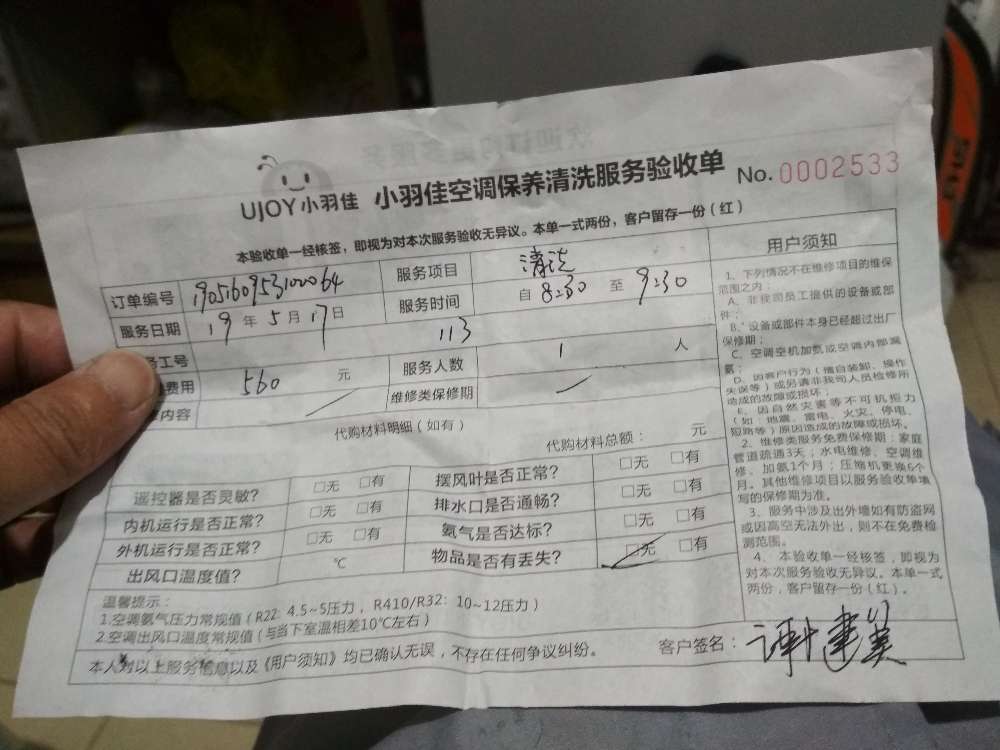 UJOY小羽佳 小羽佳空调保养清洗服务验收单 No.0002533
本验收单一经核签，即视为对本次服务验收无异议。本单一式两份，客户留存一份（红）
订单编号 190516095310064 服务项目 清洗
服务日期 19 年 5 月 17 日 服务时间 自 8:30 至 9:30
务工号 113 服务人数 1 人
费用 560 元 维修类保修期
内容
代购材料明细（如有）
代购材料总额： 元
遥控器是否灵敏? □无 □有 摆风叶是否正常? □无 □有
内机运行是否正常? □无 □有 排水口是否通畅? □无 □有
外机运行是否正常? □无 □有 氨气是否达标? □无 □有
出风口温度值? ℃ 物品是否有丢失? □无 □有
温馨提示：
1.空调氨气压力常规值（R22：4.5~5压力，R410/R32：10~12压力）
2.空调出风口温度常规值（与当下室温相差10℃左右）
本人对以上服务信息以及《用户须知》均已确认无误，不存在任何争议纠纷。
客户签名：
用户须知
1、下列情况不在维修项目的维保
范围之内：
A、非我司员工提供的设备或部
件；
B、设备或部件本身已经超过出厂
保修期；
C、空调空机加氨或空调内部漏
氨；
D、因客户行为（擅自装卸、操作
失误等）或另请非我司人员检修所
造成的故障或损坏；
E、因自然灾害等不可抗拒力
（如：地震、雷电、火灾、停电、
短路等）原因造成的故障或损坏。
2、维修类服务免费保修期：家庭
管道疏通3天；水电维修、空调维
修、加氨1个月；压缩机更换6个
月。其他维修项目以服务验收单填
写的保修期为准。
3、服务中涉及出外墙如有防盗网
或因高空无法外出，则不在免费检
测范围。
4、本验收单一经核签，即视为
对本次服务验收无异议。本单一式
两份，客户留存一份（红）。